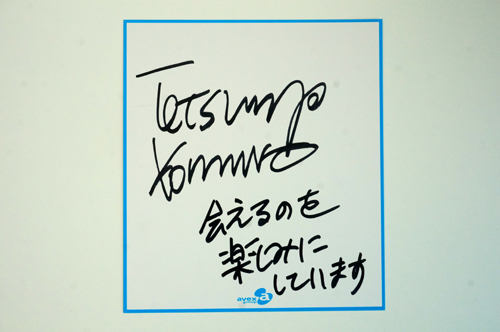 Tetsuya
Komuro
会えるのを
楽しみに
しています
avex
group
a